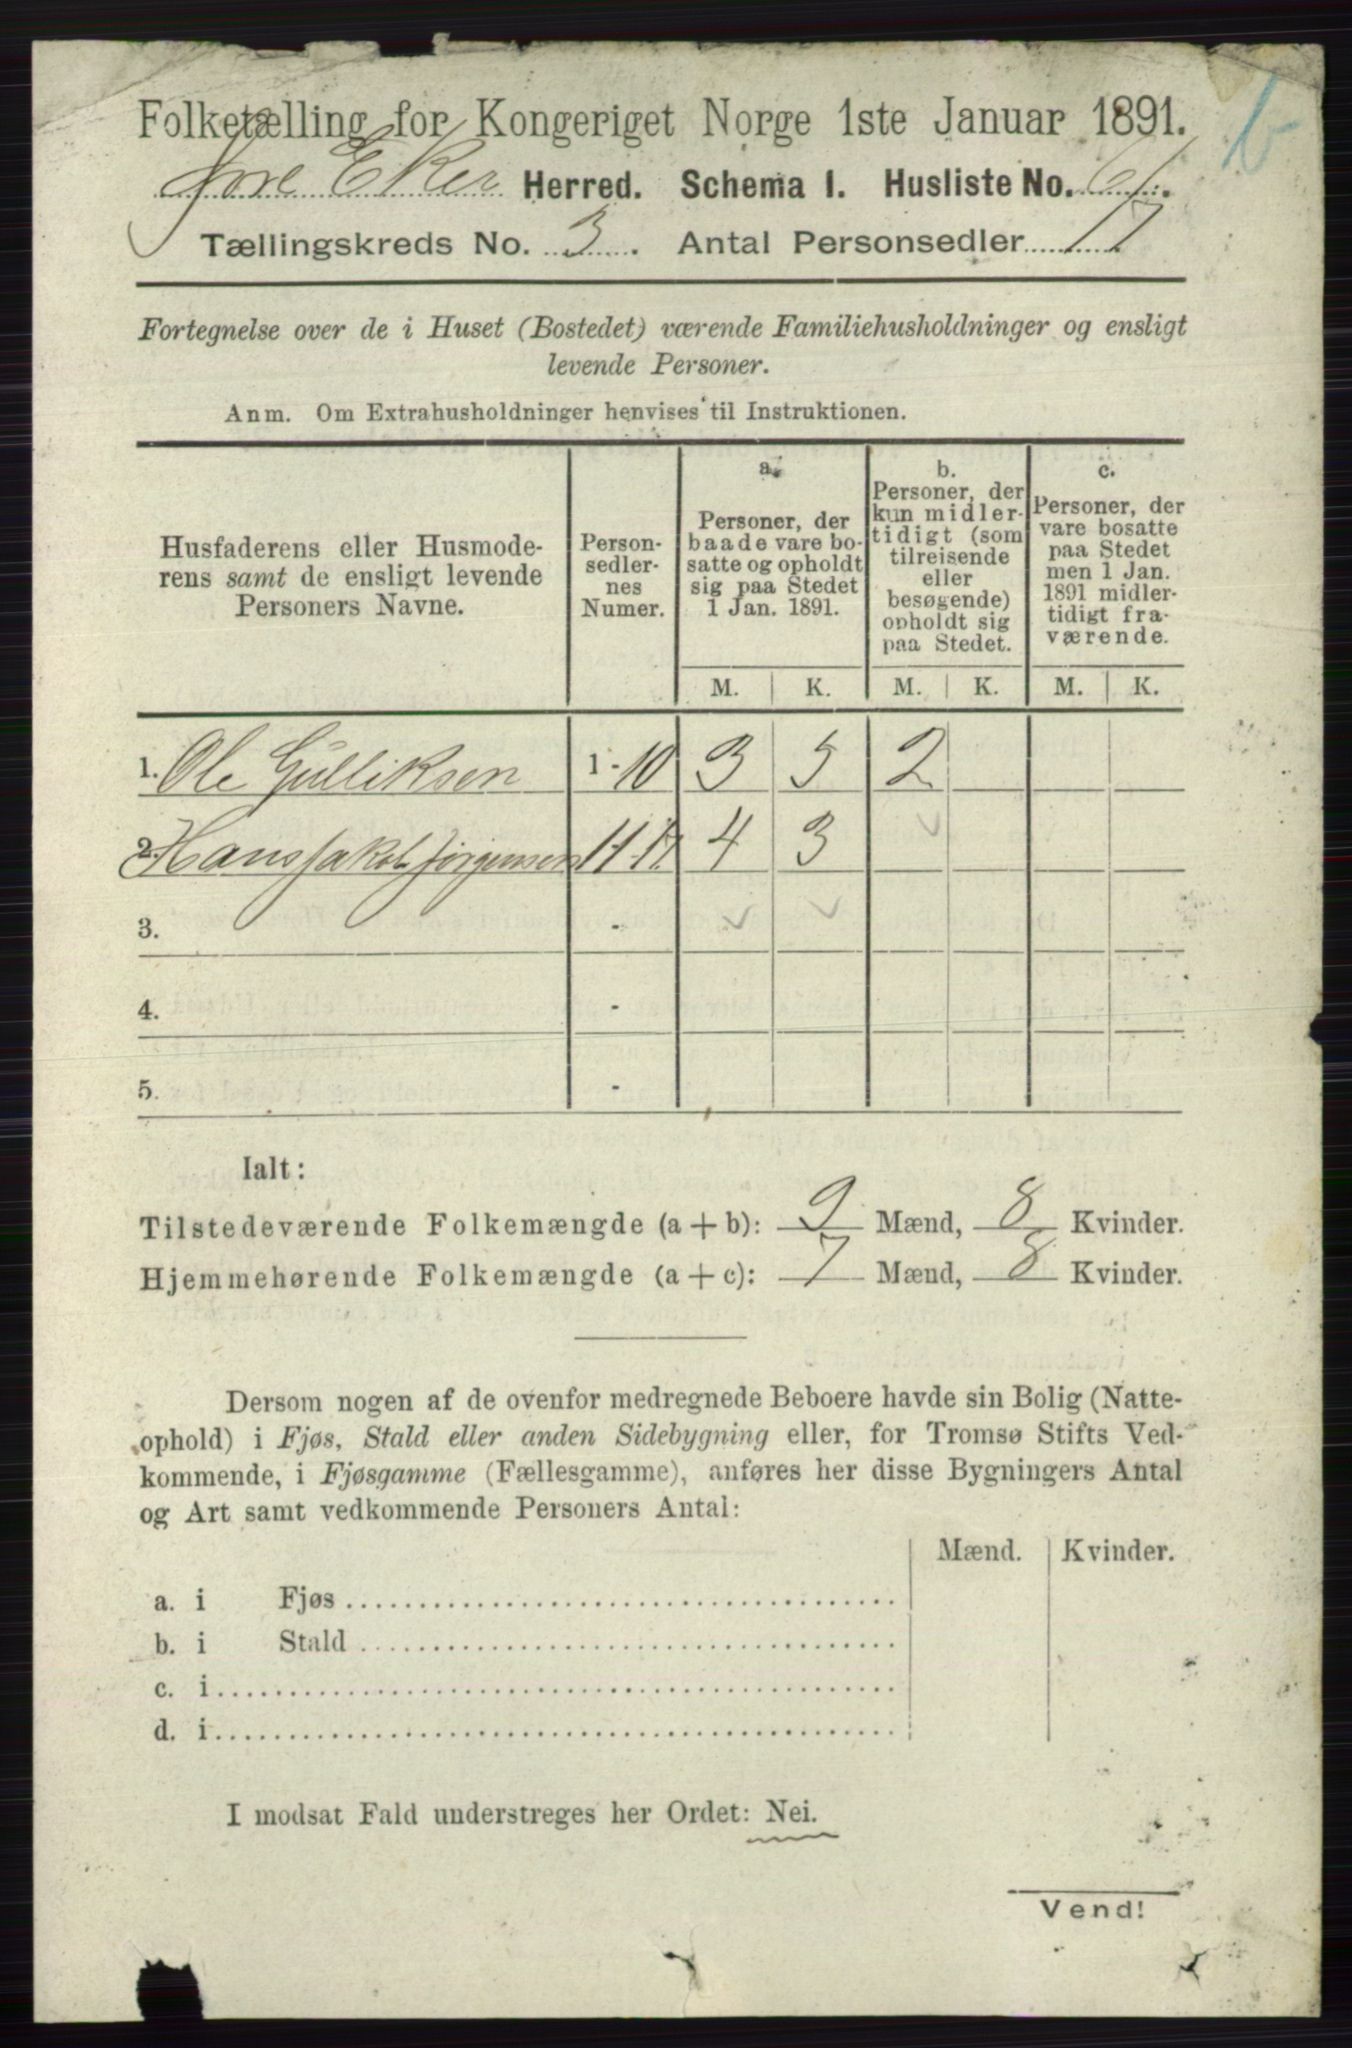 Folketælling for Kongeriget Norge 1ste Januar 1891.
Øvre Eker Herred. Schema I. Husliste No. 61.
Tællingskreds No. 3. Antal Personsedler 17
Fortegnelse over de i Huset (Bostedet) værende Familiehusholdninger og ensligt
levende Personer.
Anm. Om Extrahusholdninger henvises til Instruktionen.
Husfaderens eller Husmode-
rens samt de ensligt levende
Personers Navne.
Person-
sedler-
nes
Numer.
a.
Personer, der
baade vare bo-
satte og opholdt
sig paa Stedet
1 Jan. 1891.
b.
Personer, der
kun midler-
tidigt (som
tilreisende
eller
besøgende)
opholdt sig
paa Stedet.
c.
Personer, der
vare bosatte
paa Stedet
men 1 Jan.
1891 midler-
tidigt fra-
værende.
M. K. M. K. M. K.
1. Ole Gulliksen 1-10 3 5 2
2. Hans Jakob Jørgensen 11-17 4 3
3. -
4. -
5. -
Ialt:
Tilstedeværende Folkemængde (a + b): 9 Mænd, 8 Kvinder.
Hjemmehørende Folkemængde (a + c): 7 Mænd, 8 Kvinder.
Dersom nogen af de ovenfor medregnede Beboere havde sin Bolig (Natte-
ophold) i Fjøs, Stald eller anden Sidebygning eller, for Tromsø Stifts Ved-
kommende, i Fjøsgamme (Fællesgamme), anføres her disse Bygningers Antal
og Art samt vedkommende Personers Antal:
Mænd. Kvinder.
a. i Fjøs
b. i Stald
c. i
d. i
I modsat Fald understreges her Ordet: Nei.
Vend!